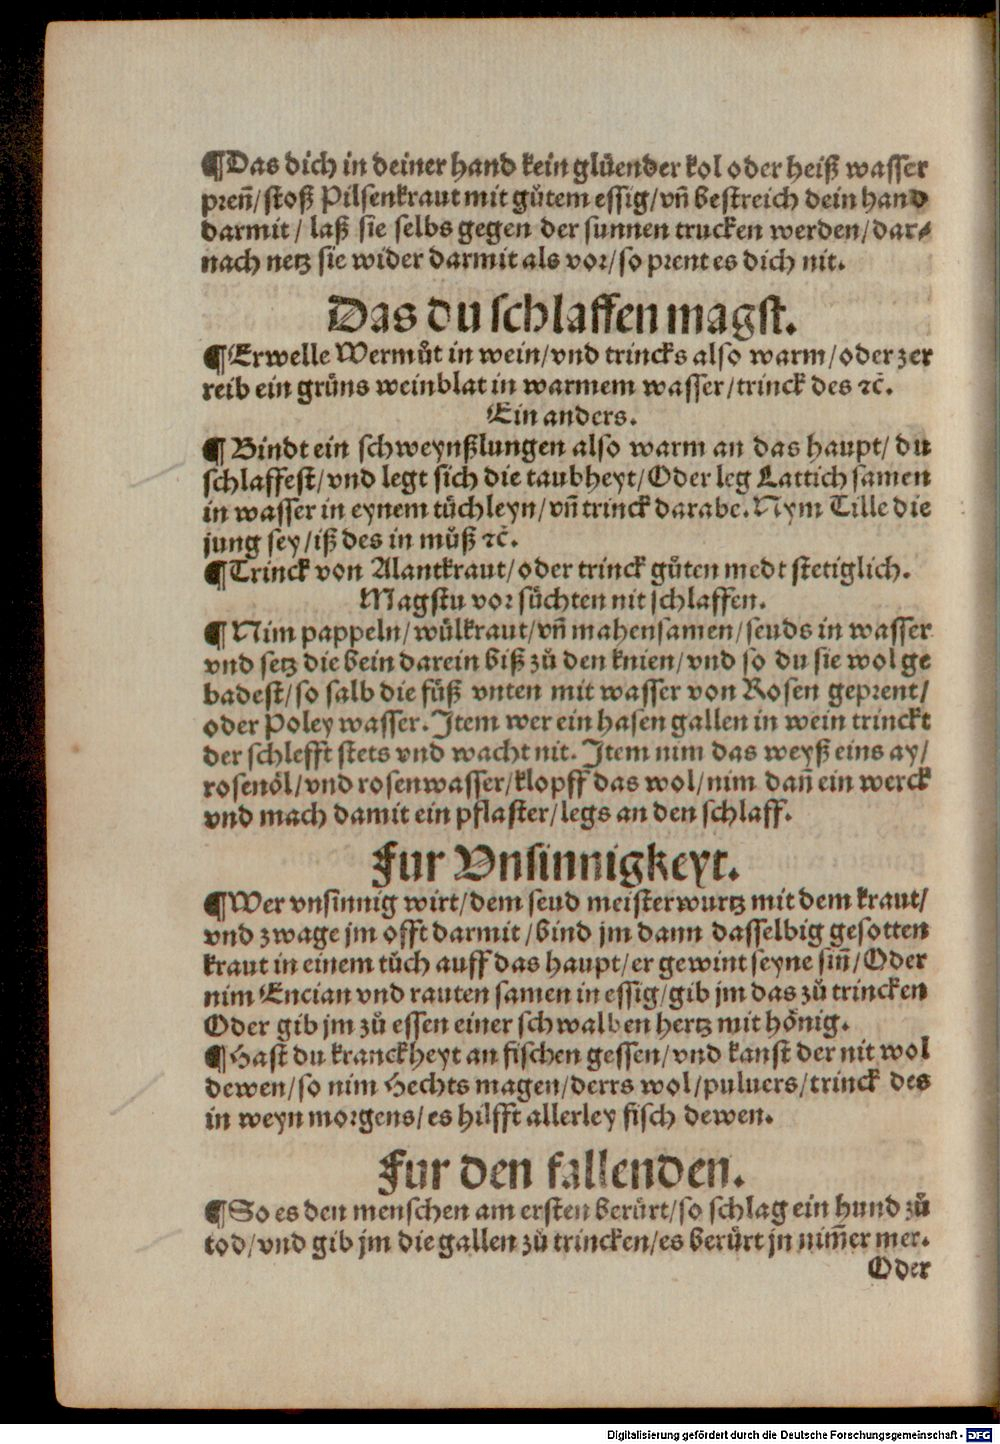 ¶Das dich in deiner hand kein glüender kol oder heiß wasser
preñ/stoß Pilsenkraut mit gůtem essig/vñ bestreich dein hand
darmit/ laß sie selbs gegen der sunnen trucken werden/dar⸗
nach netz sie wider darmit als vor/so prent es dich nit.
Das du schlaffen magst.
¶Erwelle Wermůt in wein/vnd trincks also warm/oder zer
reib ein grüns weinblat in warmem wasser/trinck des ⁊c̄.
Ein anders.
¶ Bindt ein schweynßlungen also warm an das haupt/ du
schlaffest/vnd legt sich die taubheyt/Oder leg Lattich samen
in wasser in eynem tüchleyn/vñ trinck darabe. Nym Tille die
jung sey/iß des in můß ⁊c̄.
¶Trinck von Alantkraut/oder trinck gůten medt stetiglich.
Magstu vor süchten nit schlaffen.
¶ Nim pappeln/wülkraut/vñ mahensamen/seuds in wasser
vnd setz die bein darein biß zů den knien/vnd so du sie wol ge
badest/so salb die füß vnten mit wasser von Rosen geprent/
oder Poley wasser. Item wer ein hasen gallen in wein trinckt
der schlefft stets vnd wacht nit. Item nim das weyß eins ay/
rosenöl/vnd rosenwasser/klopff das wol/nim dañ ein werck
vnd mach damit ein pflaster/legs an den schlaff.
Fur Vnsinnigkeyt.
¶Wer vnsinnig wirt/dem seud meisterwurtz mit dem kraut/
vnd zwage jm offt darmit/bind jm dann dasselbig gesotten
kraut in einem tůch auff das haupt/er gewint seyne siñ/Oder
nim Encian vnd rauten samen in essig/gib jm das zů trincken
Oder gib jm zů essen einer schwalben hertz mit hönig.
¶Hast du kranckheyt an fischen gessen/vnd kanst der nit wol
dewen/so nim Hechts magen/derrs wol/puluers/trinck des
in weyn morgens/es hilfft allerley fisch dewen.
Fur den fallenden.
¶So es den menschen am ersten berürt/so schlag ein hund zů
tod/vnd gib jm die gallen zů trincken/es berürt jn nim̃er mer.
Oder
Digitalisierung gefördert durch die Deutsche Forschungsgemeinschaft - DFG